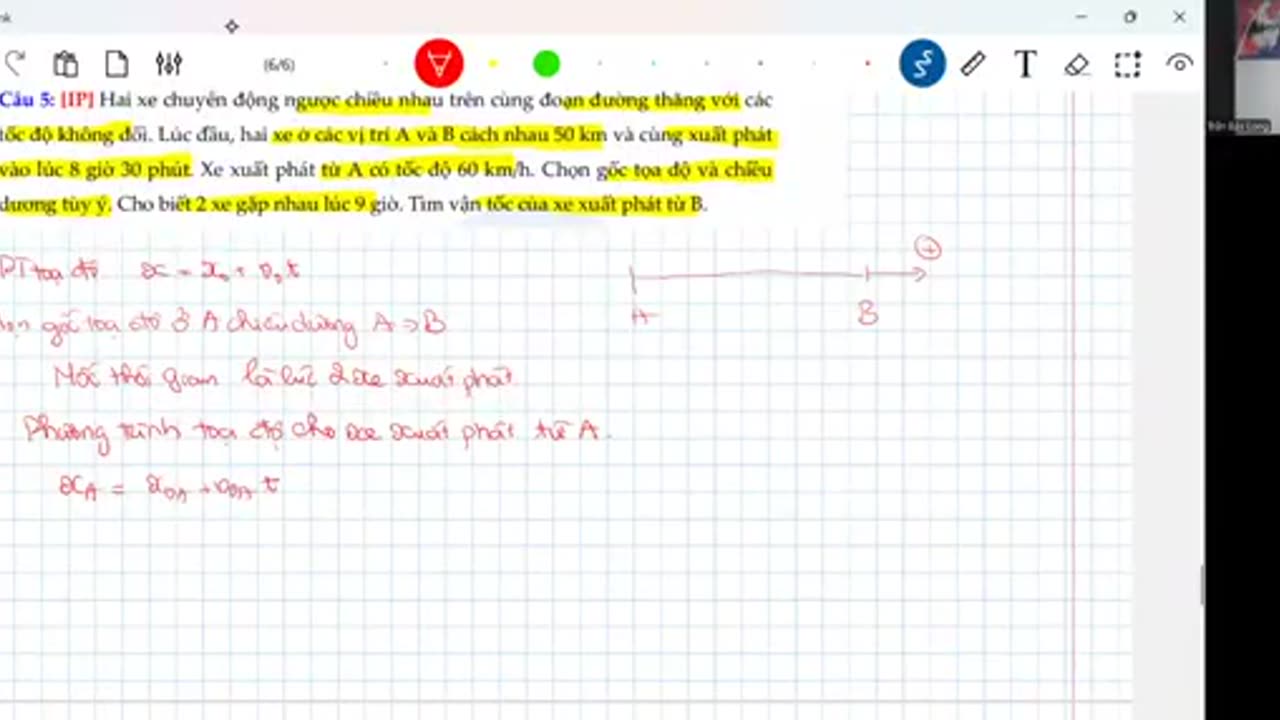 nk
(6/6)
T
Câu 5: [IP] Hai xe chuyển động ngược chiều nhau trên cùng đoạn đường thẳng với các
tốc độ không đổi. Lúc đầu, hai xe ở các vị trí A và B cách nhau 50 km và cùng xuất phát
vào lúc 8 giờ 30 phút. Xe xuất phát từ A có tốc độ 60 km/h. Chọn gốc tọa độ và chiều
dương tùy ý. Cho biết 2 xe gặp nhau lúc 9 giờ. Tìm vận tốc của xe xuất phát từ B.
PT toạ độ x = x₀ + v₀t
+
A B
gốc toạ độ ở A chiều dương A → B
Mốc thời gian là lúc 2 xe xuất phát
Phương trình toạ độ cho xe xuất phát từ A.
x_A = x_0A + v_0A t